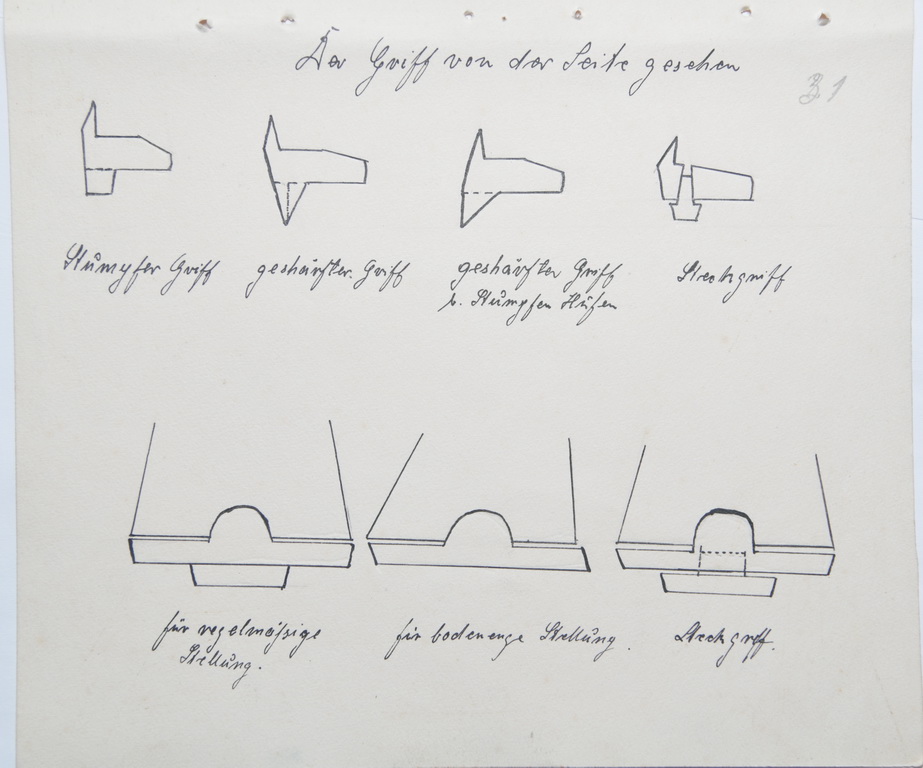 Der Griff von der Seite gesehen
31
Stumpfer Griff
geshärfter. Griff
geshärfter Griff
b. Stumpfen Hufen
Steckgriff
für regelmäßige
Stellung.
für bodenenge Stellung.
Steckgriff.